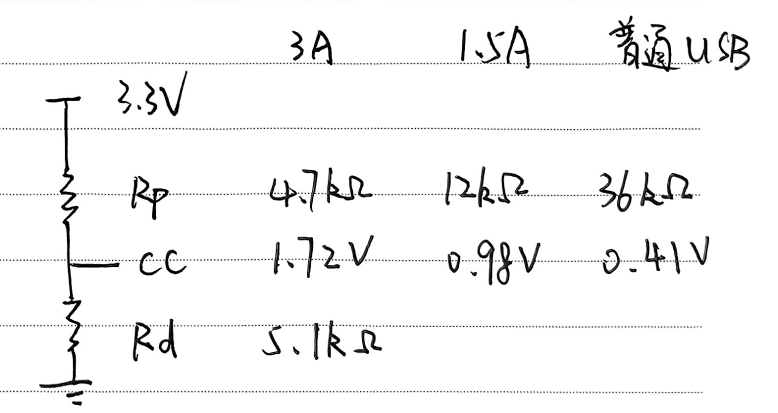 3A 1.5A 普通USB
3.3V
Rp 4.7kΩ 12kΩ 36kΩ
CC 1.72V 0.98V 0.41V
Rd 5.1kΩ